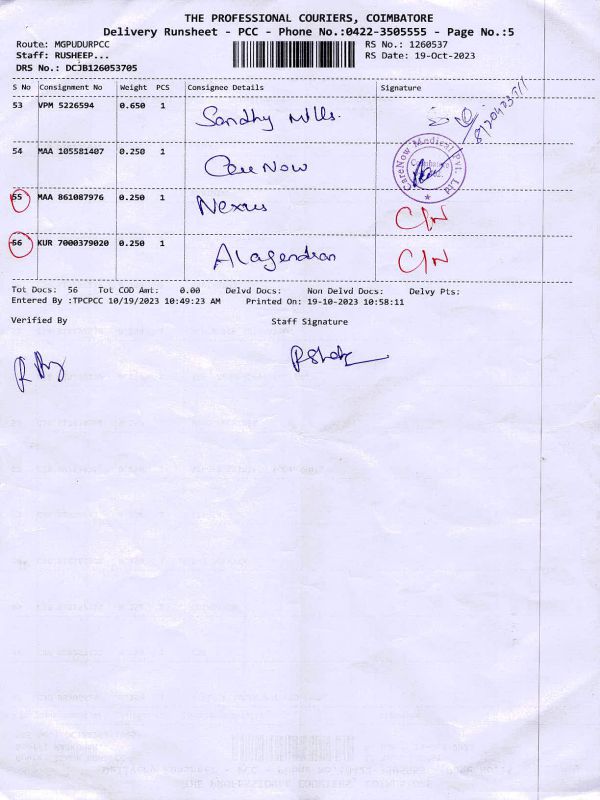 THE PROFESSIONAL COURIERS, COIMBATORE
Delivery Runsheet - PCC - Phone No.:0422-3505555 - Page No.:5
Route: MGPUDURPCC
RS No.: 1260537
Staff: RUSHEEP...
RS Date: 19-Oct-2023
DRS No.: DCJB126053705
S No Consignment No Weight PCS Consignee Details Signature
53 VPM 5226594 0.650 1 Sandhy Mills.
54 MAA 105581407 0.250 1 Care Now
CareNow Medical Pvt. Ltd
Coimbatore
55 MAA 861087976 0.250 1 Nexus C/N
56 KUR 7000379020 0.250 1 Alagendran C/N
Tot Docs: 56 Tot COD Amt: 0.00 Delvd Docs: Non Delvd Docs: Delvy Pts:
Entered By :TPCPCC 10/19/2023 10:49:23 AM Printed On: 19-10-2023 10:58:11
Verified By Staff Signature